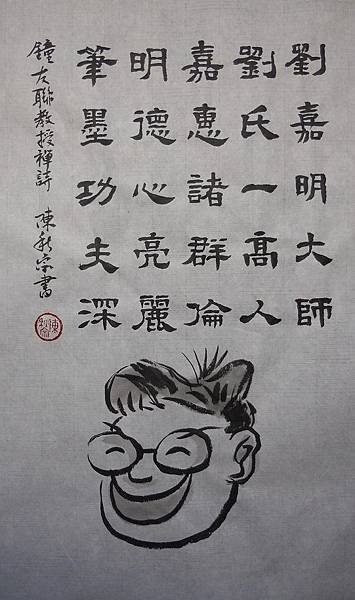 劉嘉明大師
劉氏一高人
嘉惠諸群倫
明德心亮麗
筆墨功夫深
鐘友聯教授禪詩 陳秋宗書